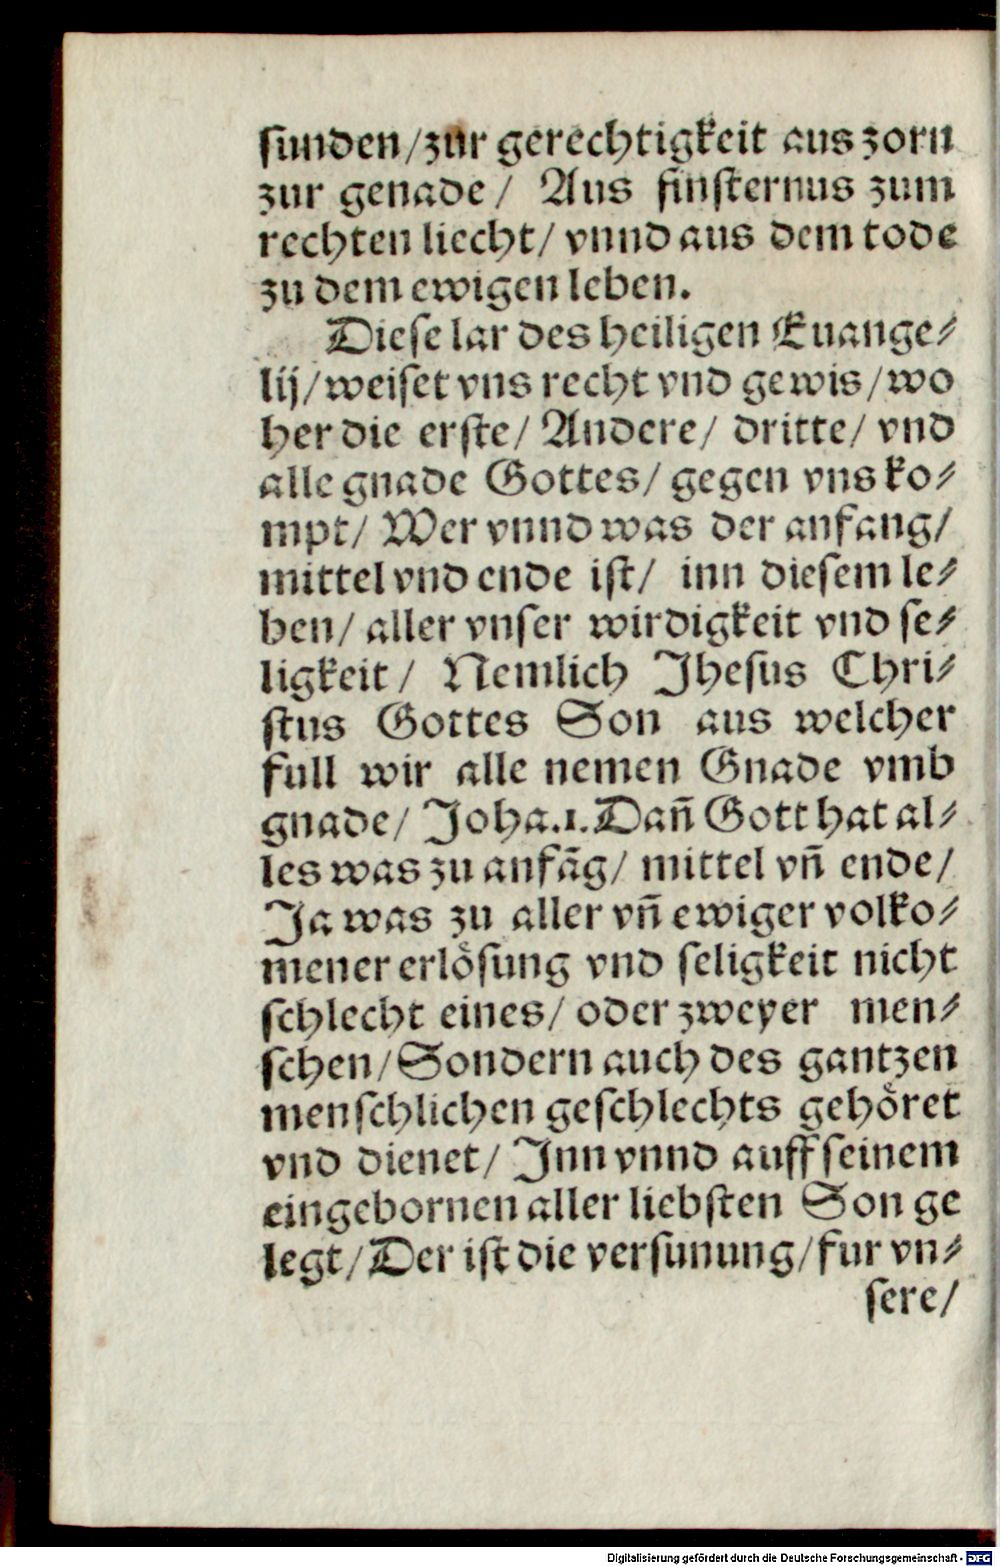 sunden/zur gerechtigkeit aus zorn
zur genade/ Aus finsternus zum
rechten liecht/ vnnd aus dem tode
zu dem ewigen leben.
Diese lar des heiligen Euange⸗
lij/weiset vns recht vnd gewis/wo
her die erste/ Andere/ dritte/ vnd
alle gnade Gottes/ gegen vns ko⸗
mpt/ Wer vnnd was der anfang/
mittel vnd ende ist/ inn diesem le⸗
ben/ aller vnser wirdigkeit vnd se⸗
ligkeit/ Nemlich Jhesus Chri⸗
stus Gottes Son aus welcher
full wir alle nemen Gnade vmb
gnade/ Joha.1.Dañ Gott hat al⸗
les was zu anfãg/ mittel vñ ende/
Ja was zu aller vñ ewiger volko⸗
mener erlösung vnd seligkeit nicht
schlecht eines/ oder zweyer men⸗
schen/Sondern auch des gantzen
menschlichen geschlechts gehöret
vnd dienet/ Jnn vnnd auff seinem
eingebornen aller liebsten Son ge
legt/Der ist die versunung/fur vn⸗
sere/
Digitalisierung gefördert durch die Deutsche Forschungsgemeinschaft - DFG